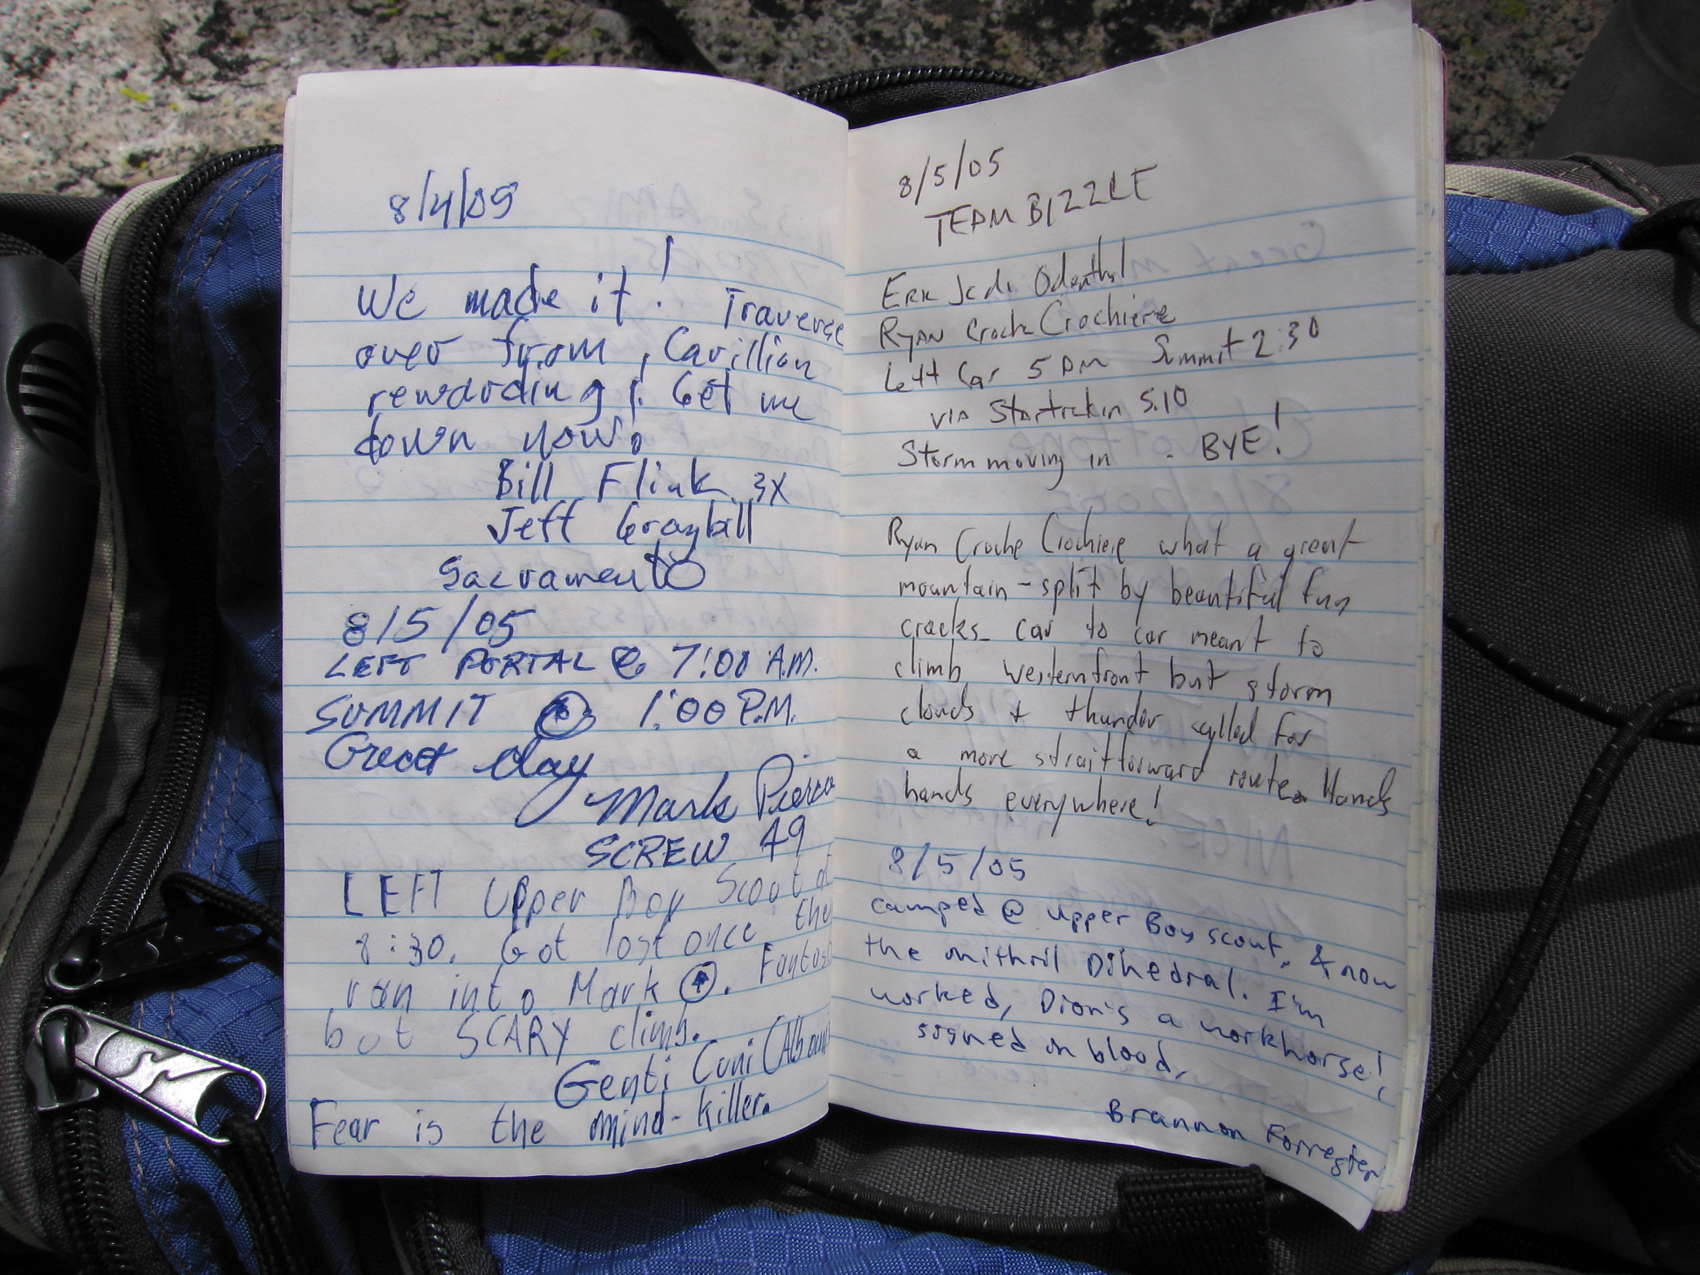 8/4/05
We made it! Traverse
over from Carillion
rewarding! Get me
down now!
Bill Flink 3X
Jeff Graybill
Sacramento
8/5/05
LEFT PORTAL @ 7:00 A.M.
SUMMIT @ 1:00 P.M.
Great day
Mark Pierce
SCREW 49
LEFT Upper Boy Scout at
8:30. Got lost once then
ran into Mark. Fantastic
but SCARY climb.
Genti Cuni
Fear is the mind-killer.
8/5/05
TEAM BIZZLE
Erik Jedi Odenthal
Ryan Croche Crochiere
Left Car 5 am Summit 2:30
via Startrekin 5.10
Storm moving in - BYE!
Ryan Croche Crochiere what a great
mountain - split by beautiful fun
cracks car to car meant to
climb westernfront but storm
clouds & thunder called for
a more straitforward route. Hands
hands everywhere!
8/5/05
camped @ upper Boy scout, & now
the mithril Dihedral. I'm
worked, Dion's a workhorse!
signed in blood,
Brannon Forrester